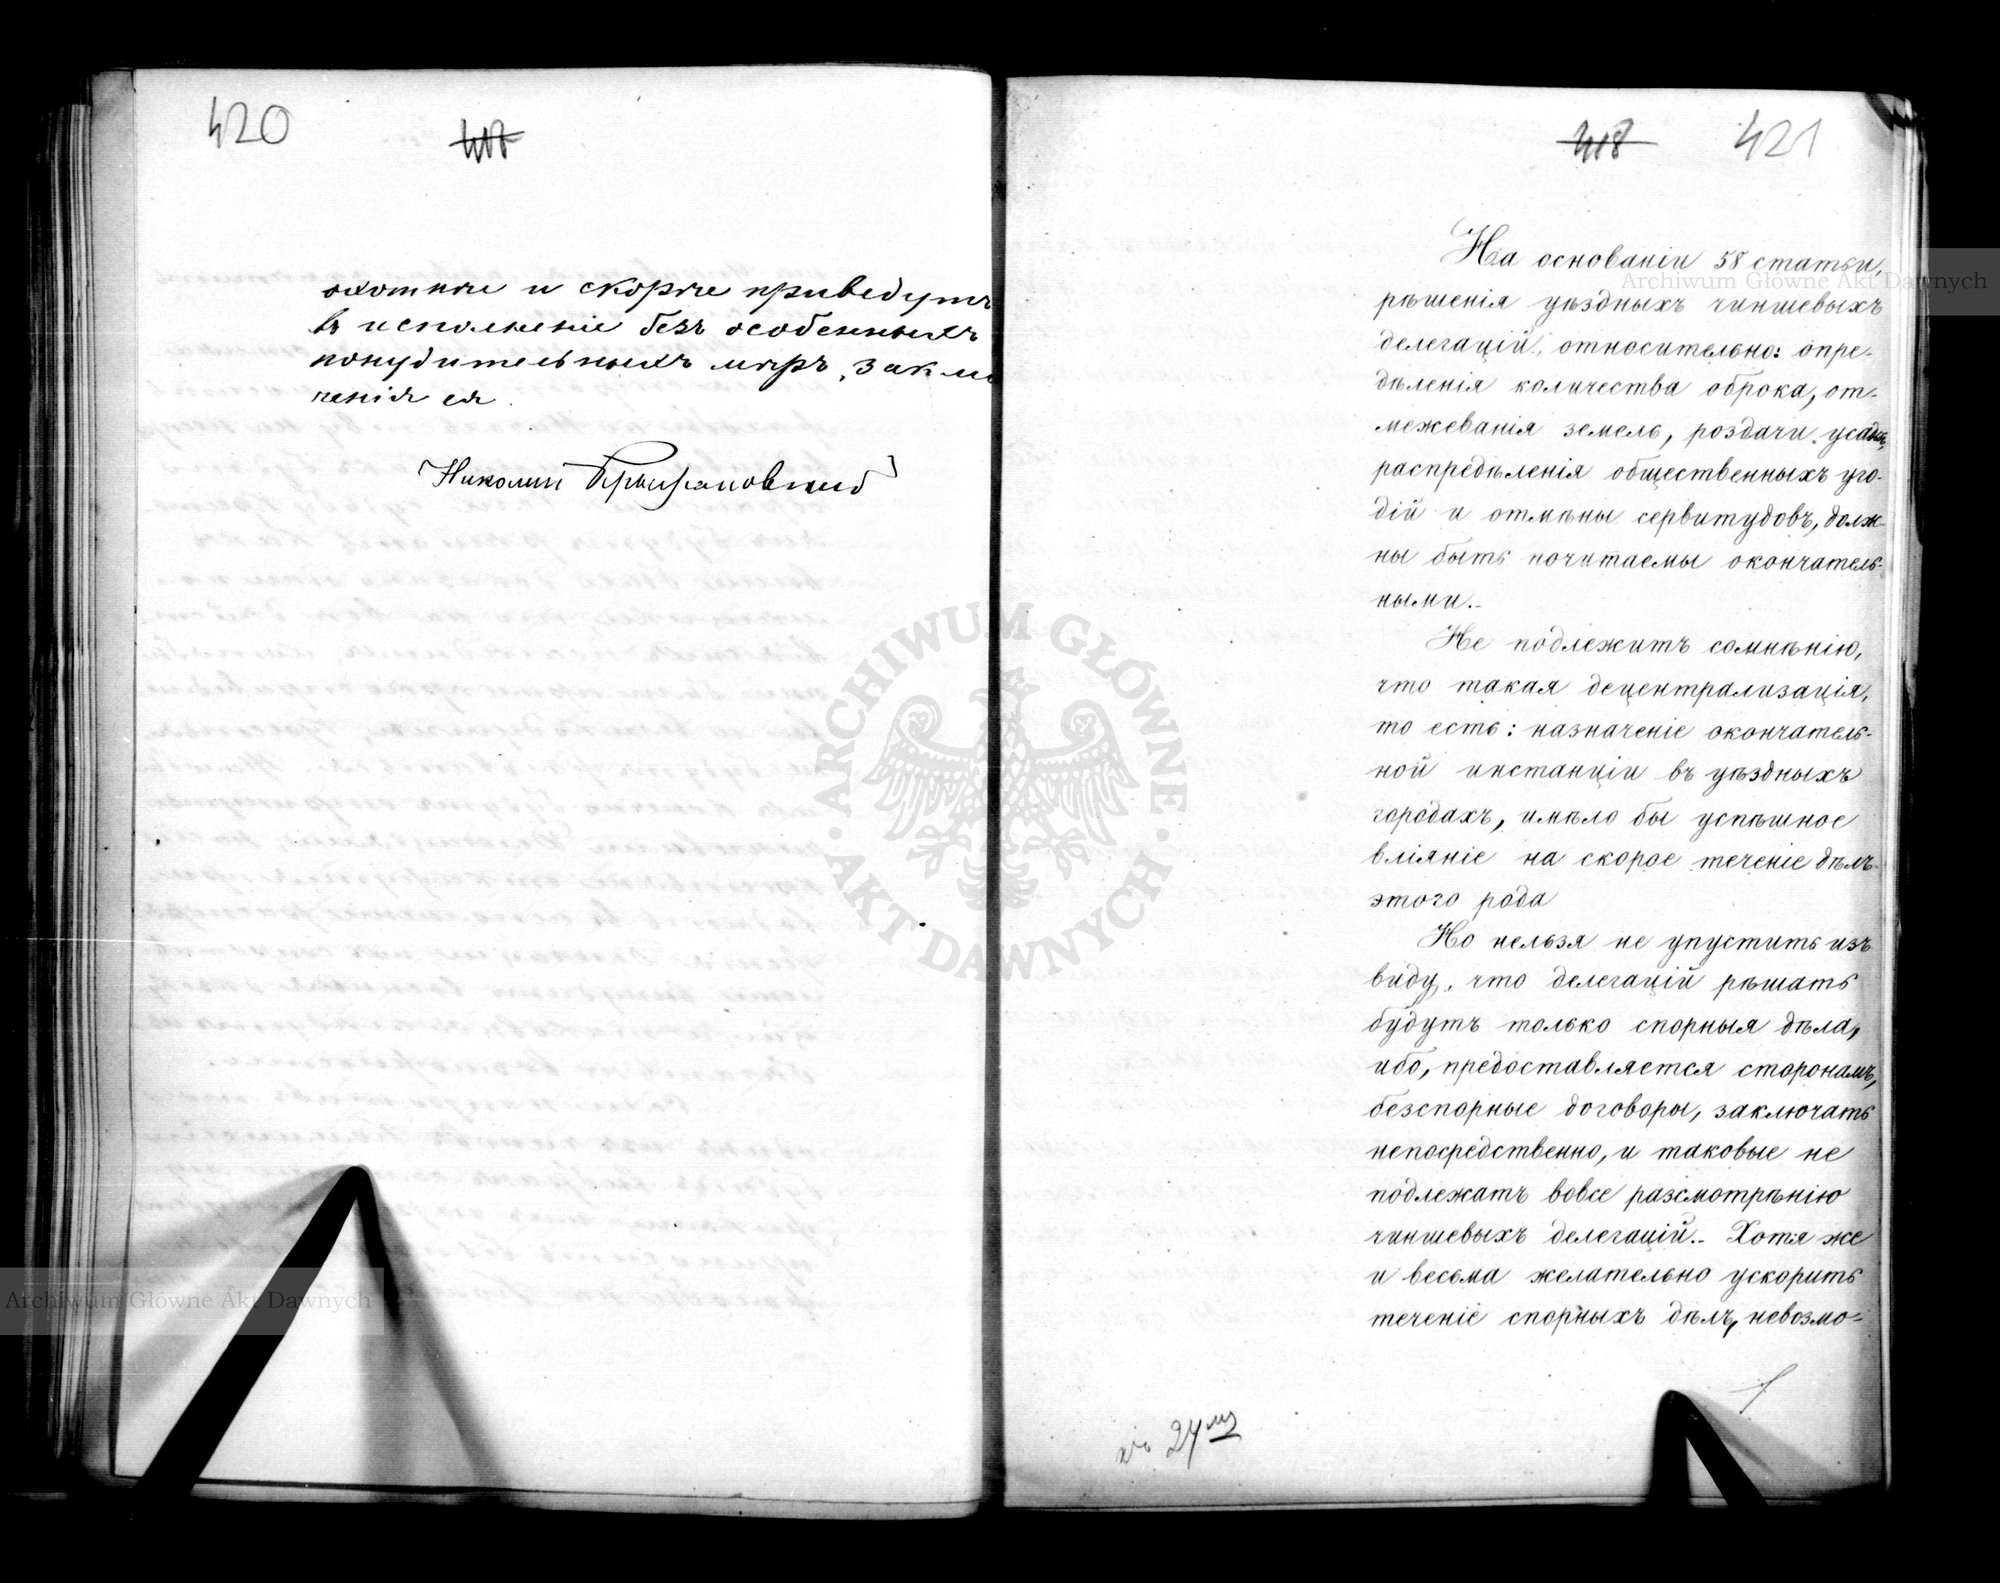 420
418
охотнѣе и скорѣе приведутъ
въ исполненіе безъ особенныхъ
понудительныхъ мѣръ, заклю
ченія ея.
Николай
418
421
На основаніи 58 статьи,
рѣшенія уѣздныхъ чиншевыхъ
делегацій, относительно: опре-
дѣленія количества оброка, от-
межеванія земель, роздачи усадьбъ,
распредѣленія общественныхъ уго-
дій и отмѣны сервитудовъ, долж-
ны быть почитаемы окончатель-
ными.
Не подлежитъ сомнѣнію,
что такая децентрализація,
то есть: назначеніе окончатель-
ной инстанціи въ уѣздныхъ
городахъ, имѣло бы успѣшное
вліяніе на скорое теченіе дѣлъ
этого рода
Но нельзя не упустить изъ
виду, что делегацій рѣшать
будутъ только спорныя дѣла,
ибо, предоставляется сторонамъ,
безспорные договоры, заключать
непосредственно, и таковые не
подлежатъ вовсе разсмотрѣнію
чиншевыхъ делегацій. Хотя же
и весьма желательно ускорить
теченіе спорныхъ дѣлъ, невозмо-
ARCHIWUM GŁÓWNE · AKT DAWNYCH ·
Archiwum Główne Akt Dawnych
Archiwum Główne Akt Dawnych